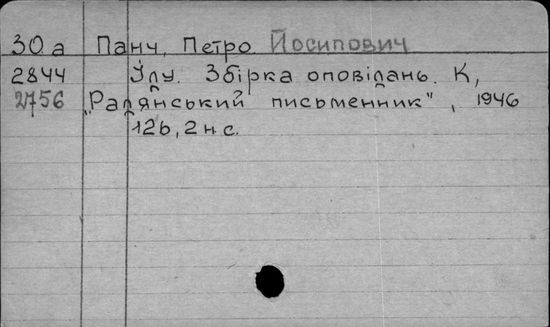 30а Панч, Петро Йосипович
2844 Іду. Збірка оповідань. К,
2756 "Радянський письменник", 1946
126, 2 н с.